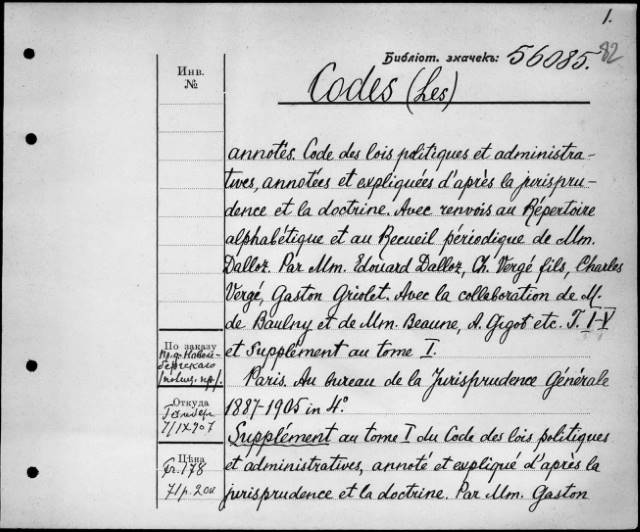 1.
Библіот. значекъ: 56085. 82
Инв.
№
Codes (Les)
annotés. Code des lois politiques et administra-
tives, annotées et expliquées d'après la jurispru-
dence et la doctrine. Avec renvois au Répertoire
alphabétique et au Recueil périodique de Mm.
Dalloz. Par Mm. Edouard Dalloz, Ch. Vergé fils, Charles
Vergé, Gaston Griolet. Avec la collaboration de M.
de Baulny et de Mm. Beaune, A. Gigot etc. T. I-V
et Supplément au tome I.
Paris. Au bureau de la Jurisprudence Générale
1887-1905 in 4º.
Supplément au tome I du Code des lois politiques
et administratives, annoté et expliqué d'après la
jurisprudence et la doctrine. Par Mm. Gaston
По заказу
Откуда
7/IX 907
Цѣна
Fr. 178
71 р. 20 к